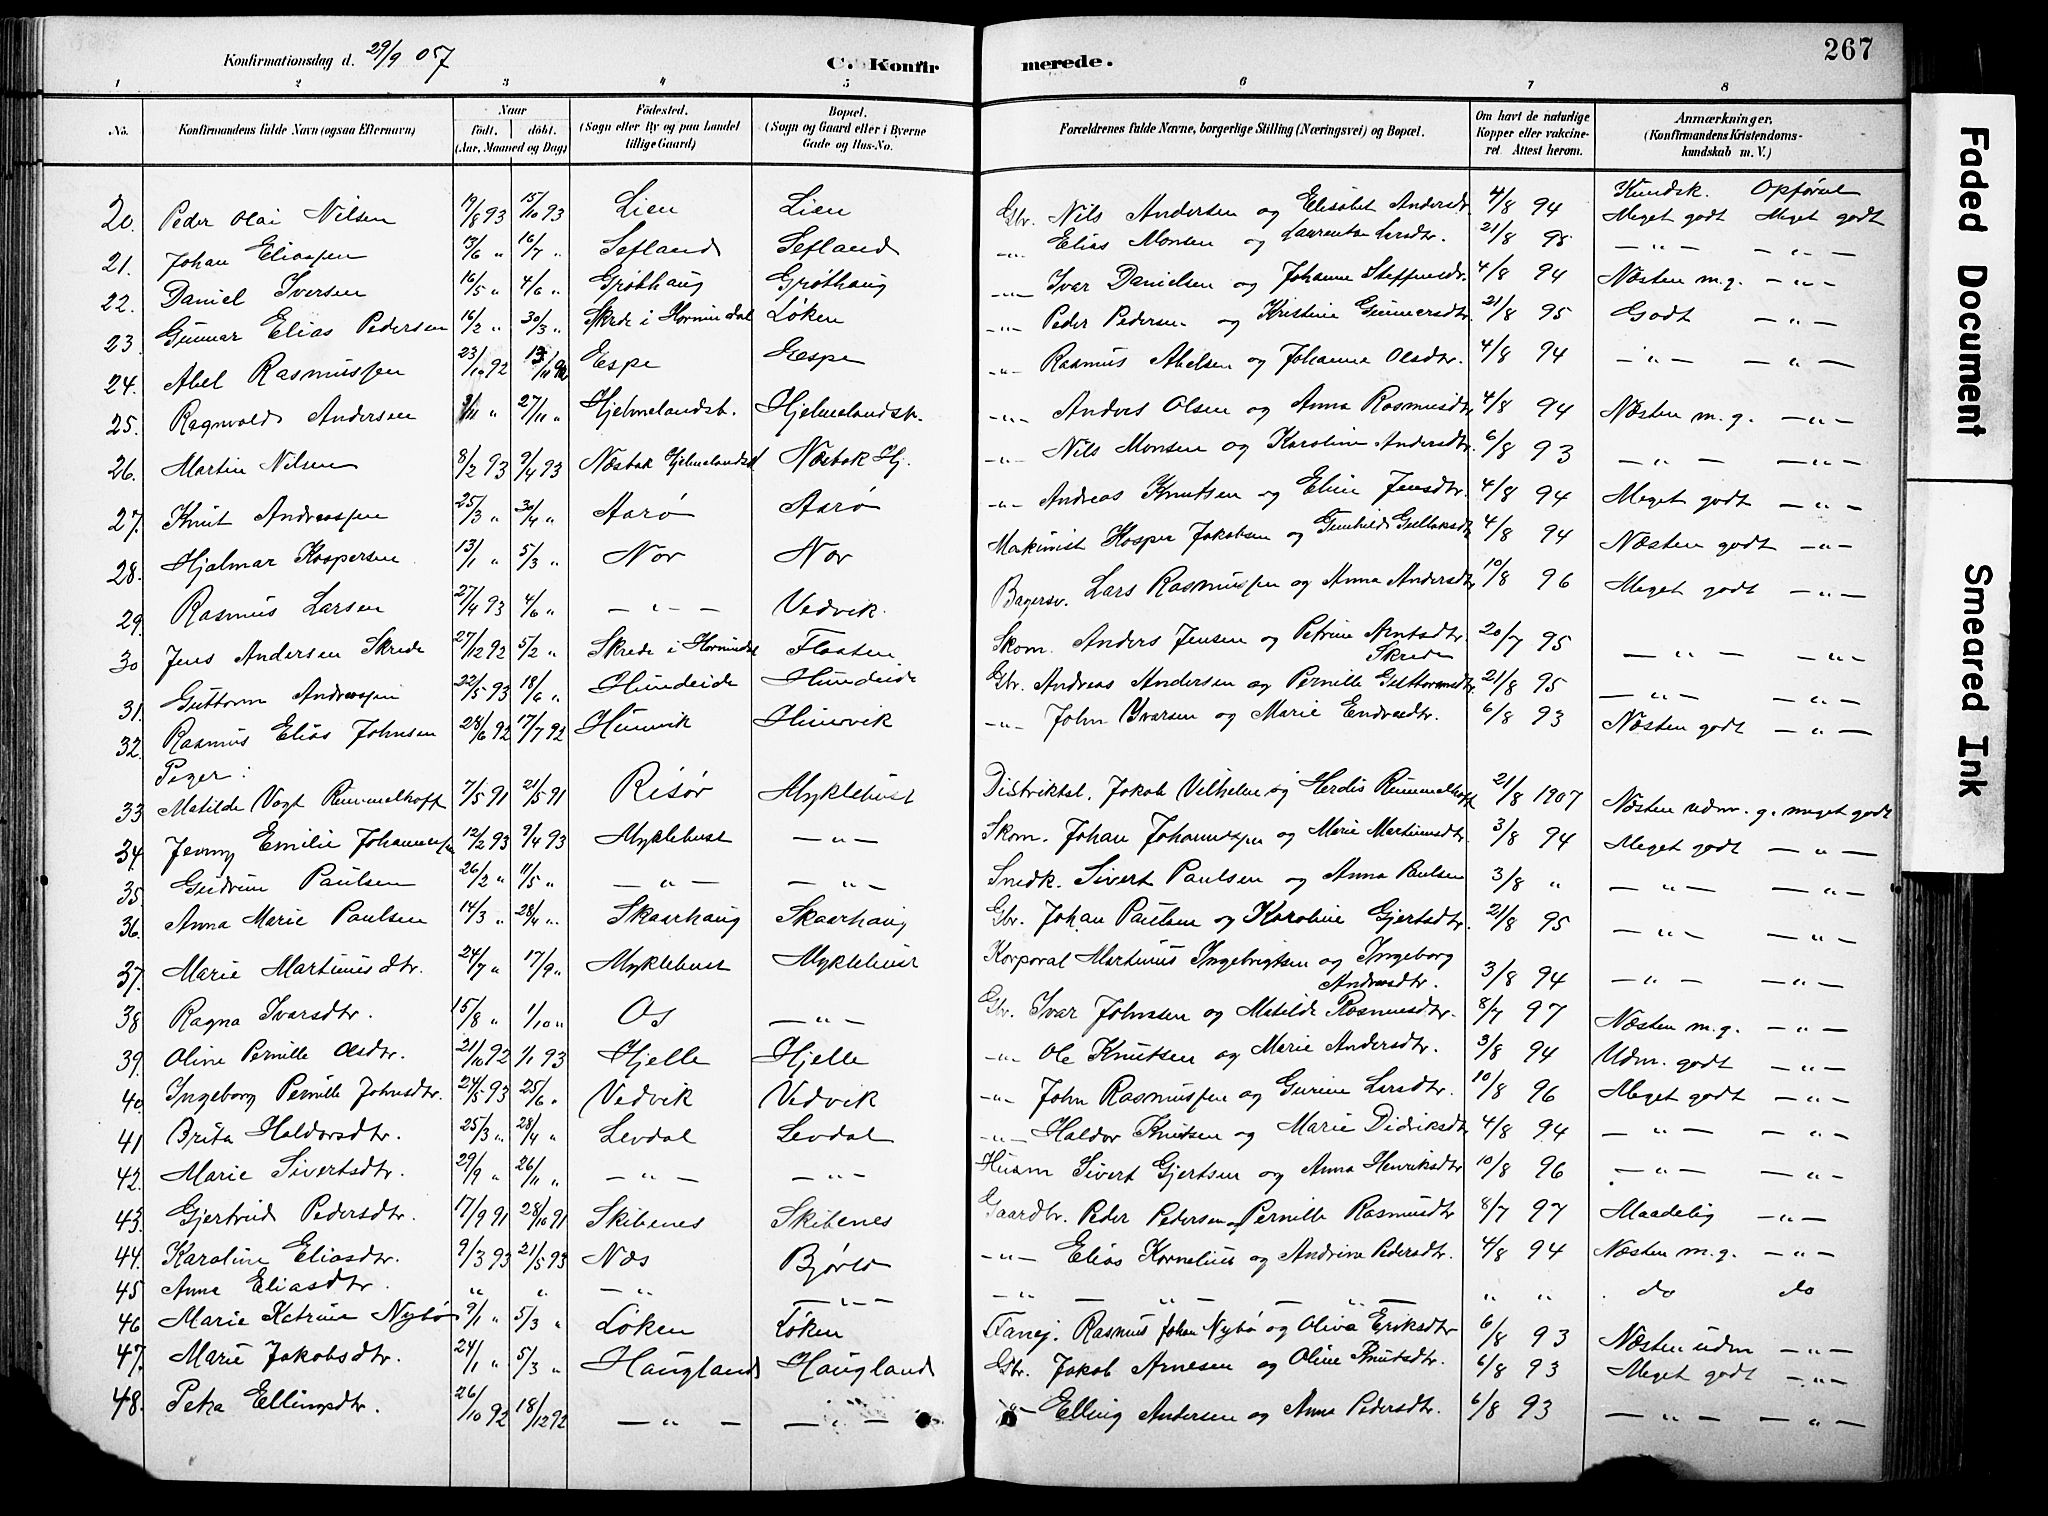 Konfirmationsdag d. 29/9 07 C. Konfirmerede. 267
1 2 3 4 5 6 7 8
No. Konfirmandens fulde Navn (ogsaa Efternavn) Naar født. døbt. (Aar, Maaned og Dag) Fødested. (Sogn eller By og paa Landet tillige Gaard) Bopæl. (Sogn og Gaard eller i Byerne Gade og Hus-No. Forældrenes fulde Navne, borgerlige Stilling (Næringsvei) og Bopæl. Om havt de naturlige Kopper eller vakcineret. Attest herom. Anmærkninger. (Konfirmandens Kristendomskundskab m. V.)
Kundsk. Opførsel
20. Peder Olai Nilsen 19/8 93 15/10 93 Lien Lien Gbr. Nils Andersen og Elisabet Andersdtr. 4/8 94 Meget godt Meget godt
21. Johan Eliassen 13/6 " 16/7 " Sefland Sefland -"- Elias Monsen og Laurentse Larsdtr. 21/8 98 — " — — " —
22. Daniel Iversen 16/5 " 4/6 " Grøthaug Grøthaug -"- Ivar Danielsen og Johanne Steffensdtr. 4/8 94 Næsten m.g. — " —
23. Gunnar Elias Pedersen 16/2 " 30/3 " Skrede i Hornindal Løken -"- Peder Pedersen og Kristine Gunnersdtr. 21/8 95 Godt — " —
24. Abel Rasmussen 23/10 92 13/11 92 Espe Espe -"- Rasmus Abelsen og Johanne Olsdtr. 4/8 94 — " — — " —
25. Ragnvald Andersen /11 " 27/11 " Hjelmelandsb. Hjelmelandsb. -"- Anders Olsen og Anna Rasmusdtr. 4/8 94 Næsten m.g. — " —
26. Martin Nilsen 8/2 93 9/4 93 Næsbak Hjelmelandsd Næsbak Hj. -"- Nils Monsen og Karoline Andersdtr. 6/8 93 — " — — " —
27. Knut Andreassen 25/3 " 30/4 " Aarø Aarø -"- Andreas Knutsen og Eline Jensdtr. 4/8 94 Meget godt — " —
28. Hjalmar Kaspersen 13/1 " 5/3 " Nor Nor Maskinist Kasper Jakobsen og Gunhild Gullaksdtr 4/8 94 Næsten godt — " —
29. Rasmus Larsen 27/4 93 4/6 " — " — Vedvik. Bagersv. Lars Rasmussen og Anna Andersdtr 10/8 96 Meget godt — " —
30 Jens Andersen Skrede 27/12 92 5/2 " Skrede i Hornindal Flaaten Skom. Anders Jensen og Petrine Arntsdtr. Skrede 20/7 95 — " — — " —
31. Guttorm Andreassen 22/5 93 18/6 " Hundeide Hundeide Gbr. Andreas Andersen og Pernille Guttormsdtr 21/8 95 — " — — " —
32. Rasmus Elias Johnsen 28/6 92 17/7 92 Hunvik Hunvik -"- John Ivarsen og Marie Endresdtr. 6/8 93 Næsten godt — " —
Piger:
33 Matilde Vogt Rummelhoff 7/5 91 21/5 91 Risør Myklebust Distriktsl. Jakob Vilhelm og Herdis Rummelhoff 21/8 1907 Næsten udm. g. meget godt
34. Jenny Emilie Johannessen 12/2 93 9/4 93 Myklebust — " — Skom. Johan Johannessen og Marie Martinusdtr. 3/8 94 Meget godt — " —
35. Gudrun Paulsen 26/2 " 11/5 " — " — — " — Snedk. Sivert Paulsen og Anna Paulsen 3/8 " — " — — " —
36. Anna Marie Paulsen 14/3 " 28/4 " Skaarhaug Skaarhaug Gbr. Johan Paulsen og Karoline Gjertsdtr. 21/8 95 — " — — " —
37. Marie Martinusdtr. 24/7 " 17/9 " Myklebust Myklebust Korporal Martinus Ingebrigtsen og Ingeborg Andersdtr. 3/8 94 — " — — " —
38 Ragna Ivarsdtr. 15/8 " 1/10 " Os — " — Gbr. Ivar Johnsen og Matilde Rasmusdtr. 8/7 97 Næsten m.g. — " —
39. Oline Pernille Olsdtr. 21/10 92 1/1 93 Hjelle Hjelle -"- Ole Knutsen og Marie Andersdtr. 3/8 94 Udm. godt — " —
40. Ingeborg Pernille Johnsdtr. 24/5 93 25/6 " Vedvik Vedvik -"- John Rasmussen og Gurine Larsdtr. 10/8 96 Meget godt — " —
41 Brita Haldorsdtr. 25/3 " 28/4 " Levdal Levdal -"- Haldor Knutsen og Marie Didriksdtr 4/8 94 — " — — " —
42. Marie Sivertsdtr. 29/9 " 26/11 " — " — — " — Husm Sivert Gjertsen og Anna Henriksdtr 10/8 96 — " — — " —
43. Gjertrud Pedersdtr. 17/9 91 28/10 91 Skibenes Skibenes Gaardbr. Peder Pedersen og Pernille Rasmusdtr 8/7 97 Maadelig — " —
44. Karoline Eliasdtr. 9/3 93 21/5 93 Næs Bjørlo -"- Elias Kornelius og Andrine Pedersdtr. 4/8 94 Næsten m.g. — " —
45 Anna Eliasdtr. " " — " — " — — " — " — " — " " do do
46 Marie Katrine Nybø 9/1 " 5/3 " Løken Løken Fanej. Rasmus Johan Nybø og Oliva Eriksdtr 6/8 93 Næsten udm — " —
47. Marie Jakobsdtr. 24/1 " 5/3 " Haugland Haugland Gbr. Jakob Arnesen og Oline Knutsdtr. 6/8 93 Meget godt — " —
48. Petra Ellingsdtr. 26/10 92 18/12 92 — " — — " — -"- Elling Andersen og Anna Pedersdtr. 6/8 93 — " — — " —
Faded Document
Smeared Ink